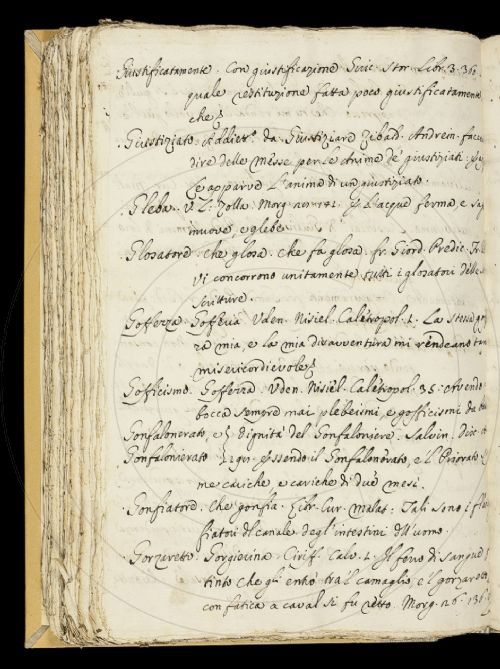 Giustificatamente. Con giustificazione Guic. Stor. Libr. 3. 36.
quale restituzione fatta poco giustificatamente
che
Giustiziato. Addiett.o da Giustiziare Zibald. Andrein.
dire delle messe per le Anime de' giustiziati.
Le apparve l'anima di un giustiziato.
Gleba. V. L. Zolla. Morg. L'acqua ferma, e
muove, e glebe.
Glosatore. che glosa. che fa glosa. fr. Giord. Predic.
Vi concorrono unitamente tutti i glosatori delle
scritture.
Gofferza. Gofferia Uden. Nisiel. Caletropol. 1. La stessa
mia, e la mia disavventura mi rendeano
misericordievole
Gofficismo. Gofferza. Uden. Nisiel. Caletropol. 35. Avendo
bocca sempre mai plebeismi, e gofficismi da
Gonfalonerato, e dignità del Gonfaloniere. Salvin. Disc.
Gonfalonierato essendo il Gonfalonerato, e 'l Priorato
me cariche, e cariche di due mesi.
Gonfiatore. Che gonfia. Libr. Cur. Malat. Tali sono i
fiatori del canale degl'intestini dell'uomo.
Gorzaretto. Gorgierina. Ciriff. Calv. 1. Il ferro di sangue
tinto che gli entrò tra 'l camaglio, e 'l gorzaretto
con fatica a caval si fu retto. Morg. 26. 136.